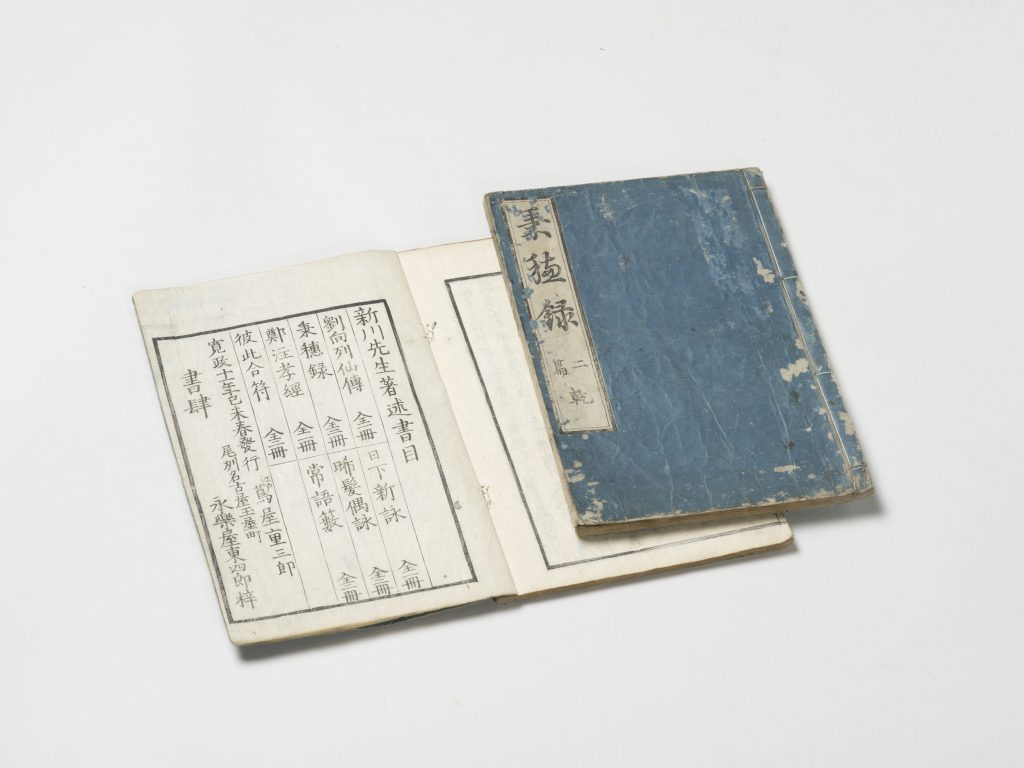 秉穂録
二篇
乾
新川先生著述書目
劉向列仙傳 全二冊 日下新詠 全一冊
秉穗録 全二冊 晞髮偶詠 全一冊
鄭注孝經 全一冊 常語藪 全一冊
彼此合符 全一冊
寛政十一年己未春發行
書肆
蔦屋重三郎
尾州名古屋玉屋町
永樂屋東四郎梓